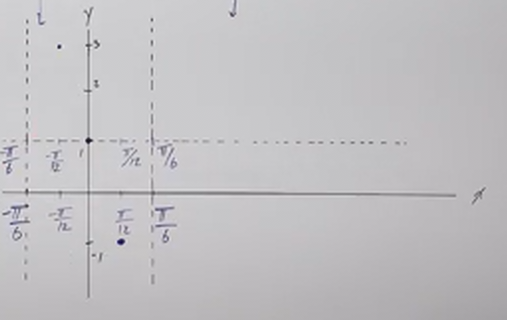 y
3
2
-π/6 -π/12 1 π/12 π/6
x
-π/6 -π/12 π/12 π/6
-1